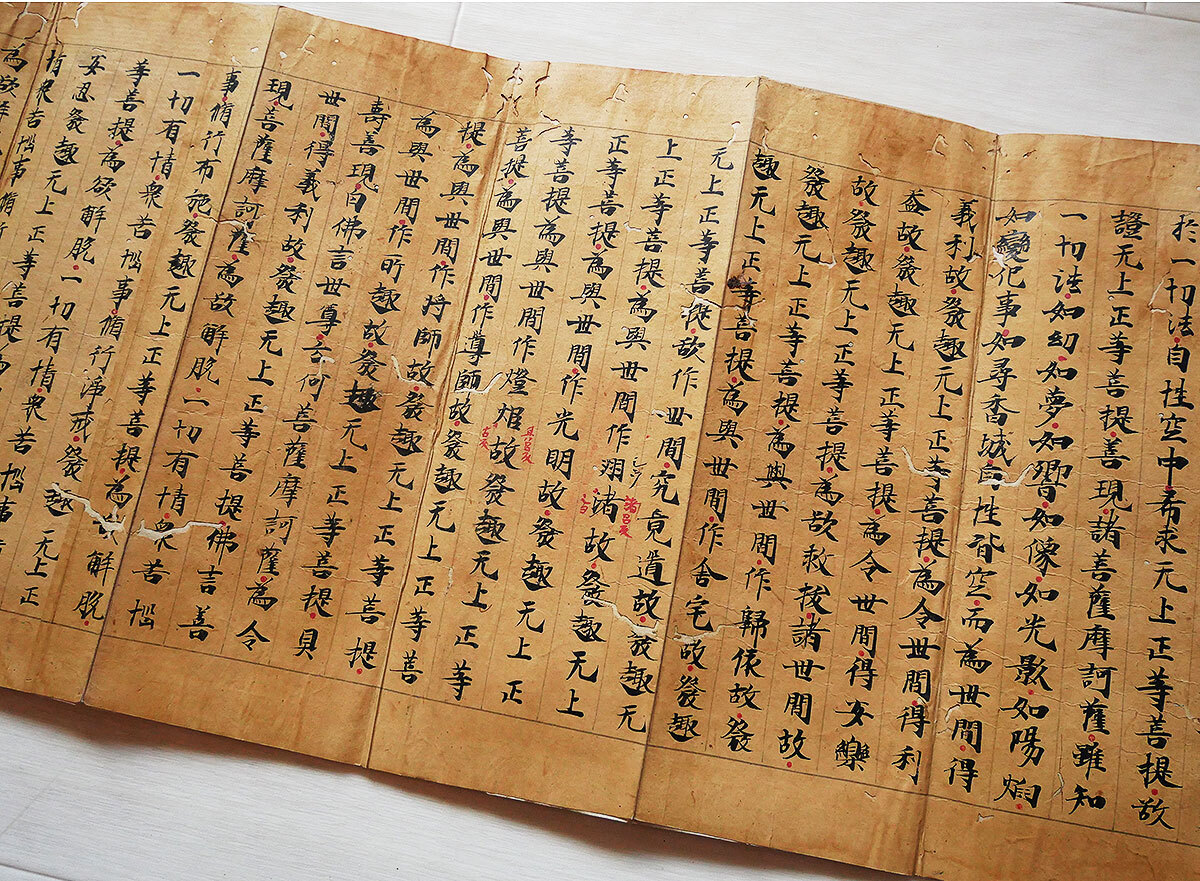 於一切法自性空中希求无上正等菩提故
證无上正等菩提善現諸菩薩摩訶薩雖知
一切法如幻如夢如響如像如光影如陽焰
如變化事如尋香城自性皆空而為世間得
義利故發趣无上正等菩提為令世間得利
益故發趣无上正等菩提為令世間得安樂
故發趣无上正等菩提為欲救拔諸世間故
發趣无上正等菩提為與世間作歸依故發
趣无上正等菩提為與世間作舍宅故發趣
无上正等菩提欲作世間究竟道故發趣无
上正等菩提為與世間作洲渚故發趣无上
正等菩提為與世間作光明故發趣无上正
等菩提為與世間作燈炬故發趣无上正等
菩提為與世間作導師故發趣无上正等菩
提為與世間作將師故發趣无上正等菩提
為與世間作所趣故發趣无上正等菩提貝
壽善現白佛言世尊云何菩薩摩訶薩為令
世間得義利故發趣无上正等菩提佛言善
現菩薩摩訶薩為故解脫一切有情衆苦惱
事脩行布施發趣无上正等菩提為解脫
一切有情衆苦惱事脩行淨戒發趣无上正
等菩提為欲解脫一切有情衆苦惱事
安忍發趣无上正等菩提
情衆苦惱事脩
為欲解